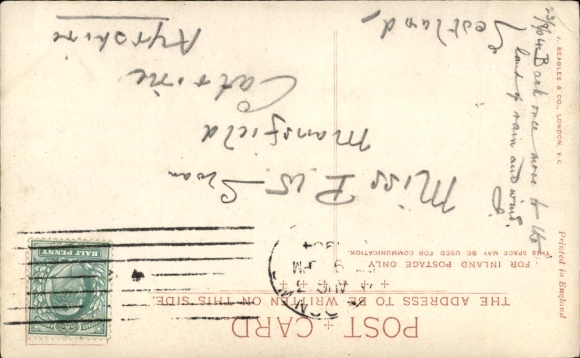 POST CARD
THE ADDRESS TO BE WRITTEN ON THIS SIDE.
FOR INLAND POSTAGE ONLY
THIS SPACE MAY BE USED FOR COMMUNICATION.
HALF PENNY
AUG
Miss P.W. Swan
Mansfield
Catrine
Ayrshire
Scotland
Back once more to the
land of rain and wind.
J. BEAGLES & CO., LONDON, E.C.
Printed in England